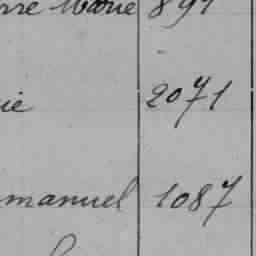 rre Marie 897
ie 2071
manuel 1087